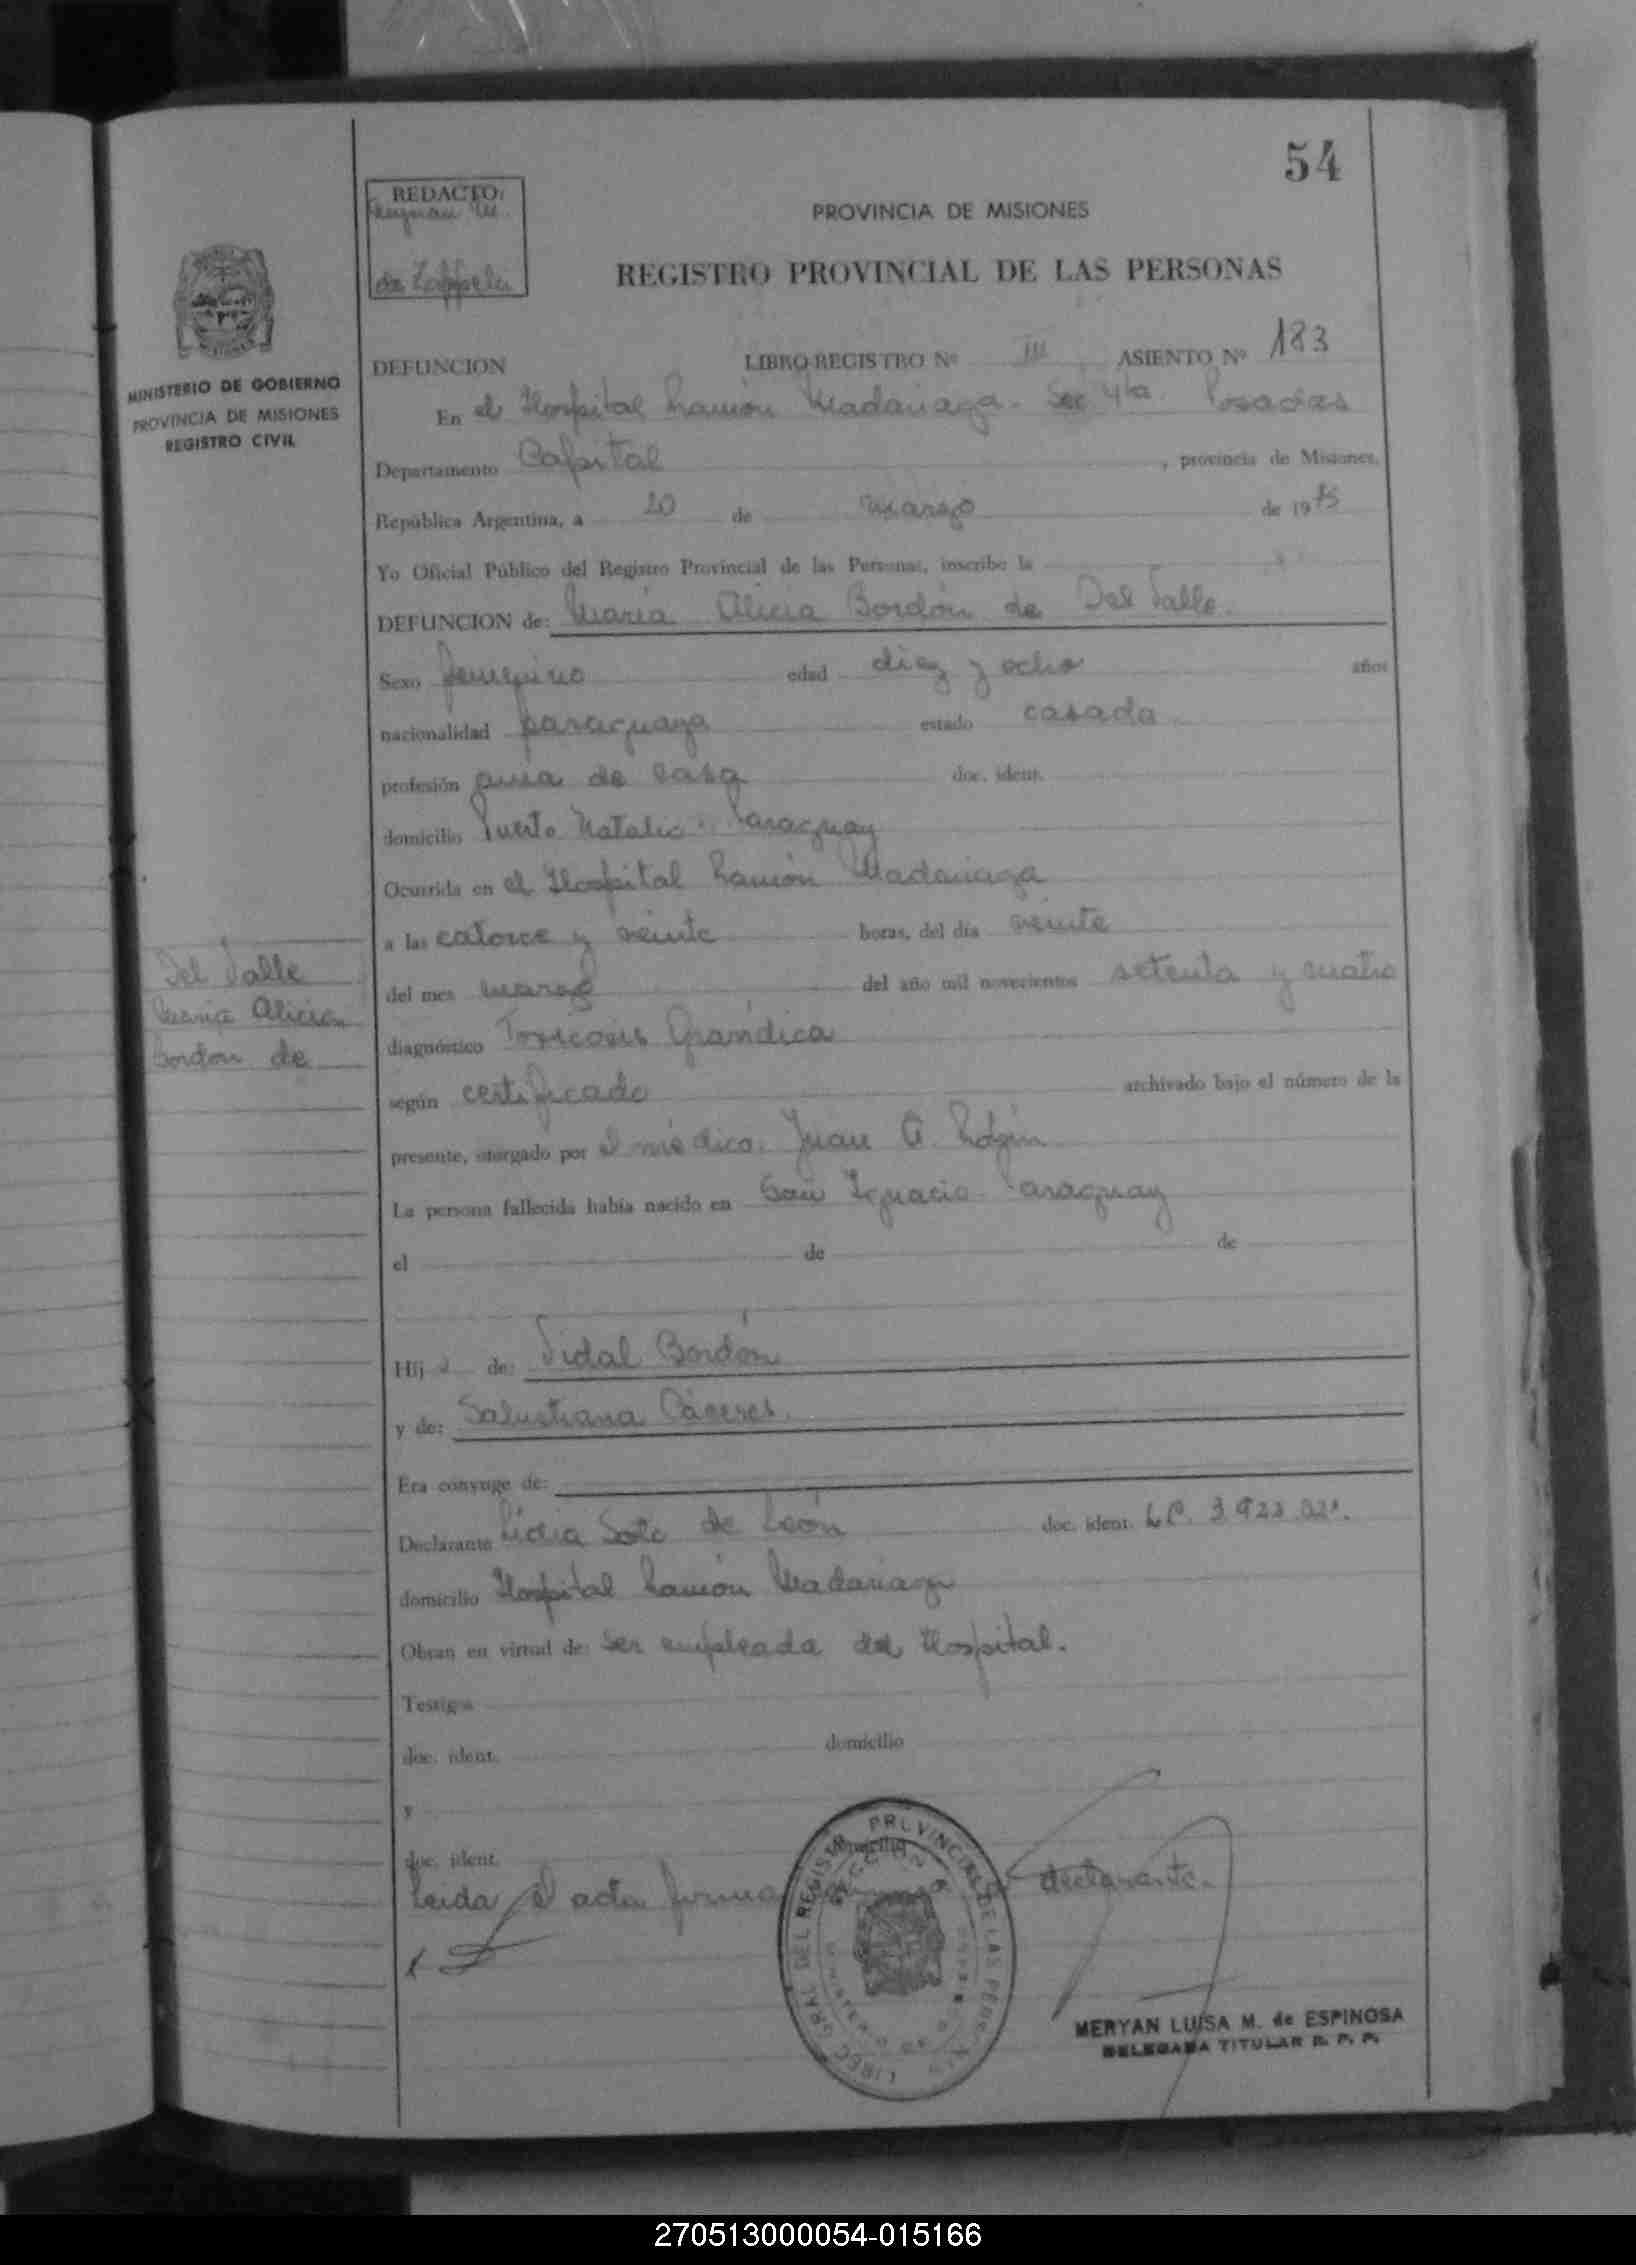 54
REDACTO:
de
PROVINCIA DE MISIONES
REGISTRO PROVINCIAL DE LAS PERSONAS
MINISTERIO DE GOBIERNO
PROVINCIA DE MISIONES
REGISTRO CIVIL
DEFUNCION LIBRO REGISTRO Nº III ASIENTO Nº 183
En el Hospital Ramón Madariaga. Sec 4ta. Posadas
Departamento Capital, provincia de Misiones,
República Argentina, a 20 de marzo de 1975
Yo Oficial Público del Registro Provincial de las Personas, inscribo la
DEFUNCION de: María Alicia Bordón de Del Valle.
Sexo femenino edad diez y ocho años
nacionalidad paraguaya estado casada
profesión ama de casa doc. ident.
domicilio Puerto Natalio. Paraguay
Ocurrida en el Hospital Ramón Madariaga
a las catorce y veinte horas, del día veinte
del mes marzo del año mil novecientos setenta y cuatro
Del Valle
María Alicia
Bordon de
diagnóstico Toxicosis Gravídica
según certificado archivado bajo el número de la
presente, otorgado por el médico. Juan A.
La persona fallecida había nacido en San Ignacio. Paraguay
el de de
Hij a de: Vidal Bordón
y de: Salustiana Cáceres.
Era cónyuge de:
Declarante Lidia Soto de León doc. ident. L.C. 3.923.
domicilio Hospital Ramón Madariaga
Obran en virtud de: ser empleada del Hospital.
Testigos
doc. ident. domicilio
y
doc. ident. domicilio
Leida el acta firma declarante.
DIREC. GRAL. DEL REGISTRO PROVINCIAL DE LAS PERSONAS
SECCION 4
MERYAN LUISA M. de ESPINOSA
DELEGADA TITULAR R. P. P.
270513000054-015166